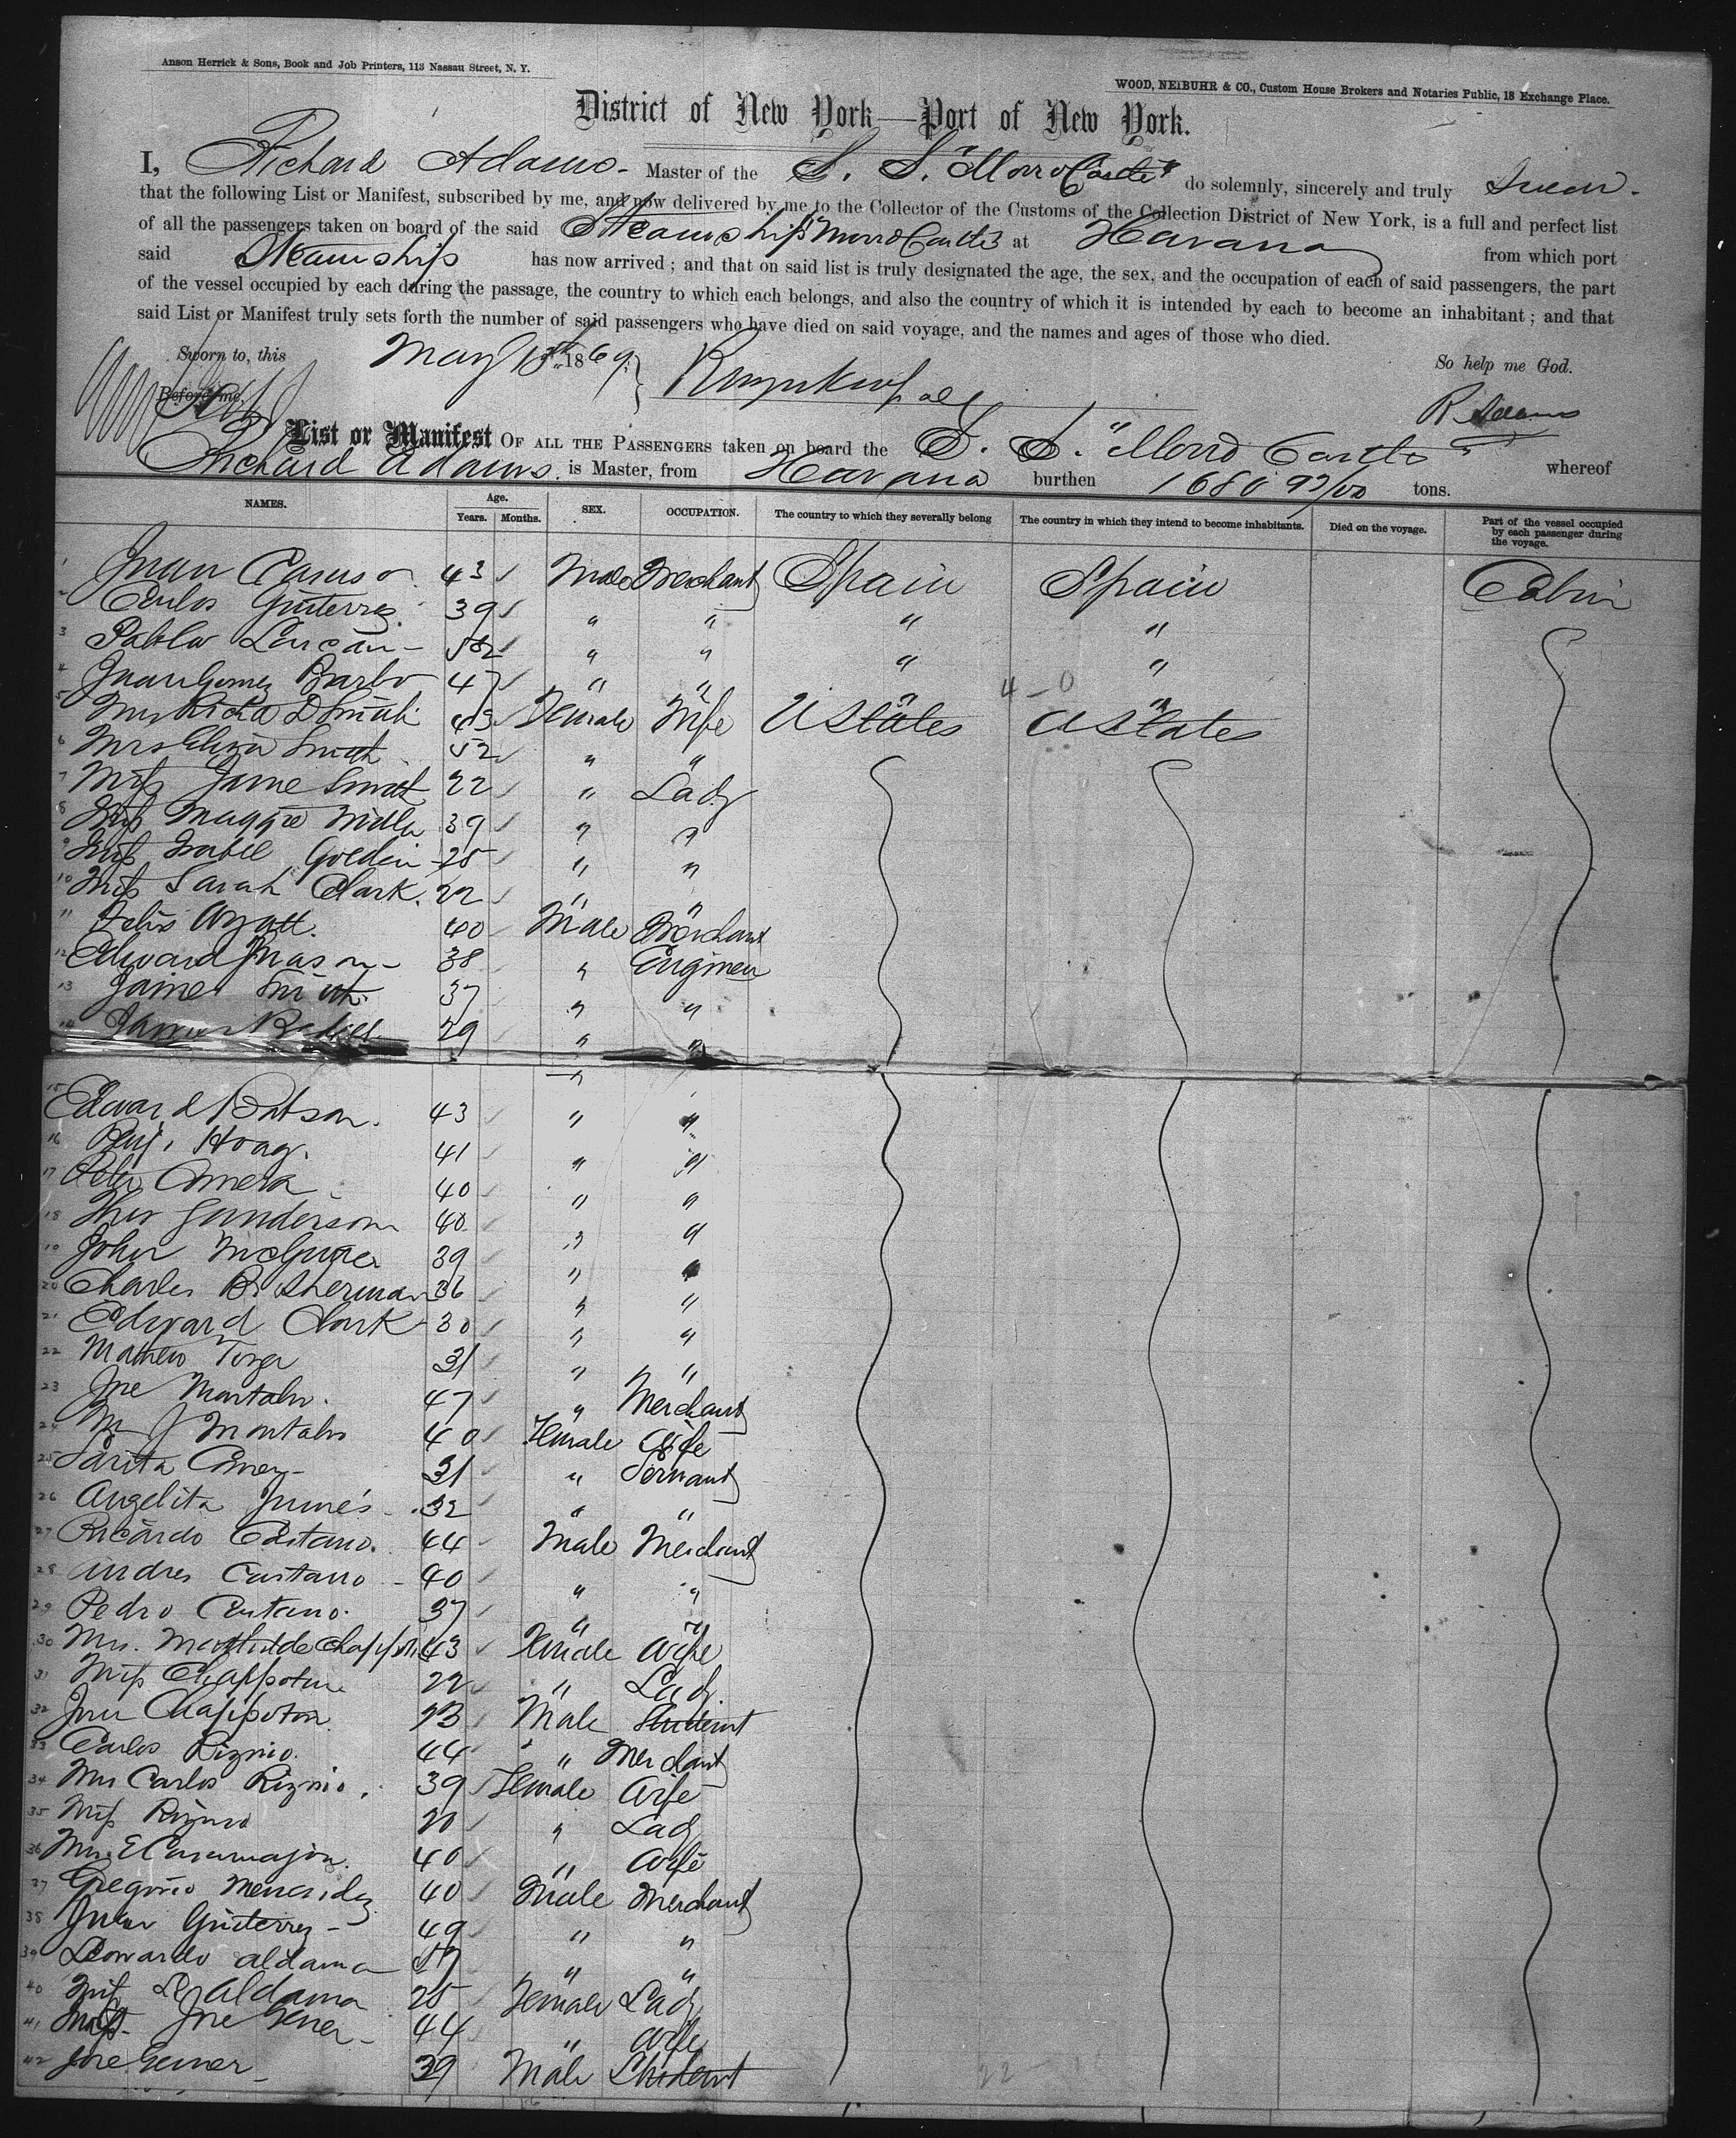 Anson Herrick & Sons, Book and Job Printers, 113 Nassau Street, N. Y.
WOOD, NEIBUHR & CO., Custom House Brokers and Notaries Public, 18 Exchange Place.
District of New York—Port of New York.
I, Richard Adams - Master of the S. S. "Morro Castle" do solemnly, sincerely and truly Swear -
that the following List or Manifest, subscribed by me, and now delivered by me to the Collector of the Customs of the Collection District of New York, is a full and perfect list
of all the passengers taken on board of the said Steamship "Morro Castle" at Havana from which port
said Steamship has now arrived ; and that on said list is truly designated the age, the sex, and the occupation of each of said passengers, the part
of the vessel occupied by each during the passage, the country to which each belongs, and also the country of which it is intended by each to become an inhabitant ; and that
said List or Manifest truly sets forth the number of said passengers who have died on said voyage, and the names and ages of those who died.
Sworn to, this May 1869. So help me God.
Before me, R Adams
List or Manifest OF ALL THE PASSENGERS taken on board the S. S. "Morro Castle" whereof
Richard Adams. is Master, from Havana burthen 1680 93/100 tons.
NAMES. Age. Years. Months. SEX. OCCUPATION. The country to which they severally belong The country in which they intend to become inhabitants. Died on the voyage. Part of the vessel occupied by each passenger during the voyage.
1 Juan Caruso 43 Male Merchant Spain Spain Cabin
2 Carlos Guterrez 39 " " " "
3 Pablo 52 " " " "
4 Juan Gomez Barbo 47 " " " "
4-0
5 Mrs D Smith 43 Female Wife U States U States
6 Mrs Eliza Smith 52 " "
7 Miss Jane Smith 22 " Lady
8 Miss Maggie 39 " "
9 Miss Isabel 25 " "
10 Miss Sarah Clark. 22 " "
11 Wyatt. 40 Male Merchant
12 Edward Mason - 38 " Engineer
13 James Smith 37 " "
14 James 29 " "
15 Edward Watson. 43 " "
16 Benj. Hoag. 41 " "
17 Peter 40 " "
18 Gunderson 40 " "
19 John McGuire 39 " "
20 Charles B. Sherman 36 " "
21 Edward Clark 30 " "
22 Mathew 31 " "
23 Jose Montalvo. 47 " Merchant
24 M J Montalvo 40 Female Wife
25 Sarita 31 " Servant
26 Angelita 32 " "
27 Ricardo 44 Male Merchant
28 Andres 40 " "
29 Pedro 37 " "
30 Mrs. Mathilde 43 Female Wife
31 Miss Chappotin 22 " Lady
32 Chappotin 23 Male Student
33 Carlos 44 " Merchant
34 Mrs Carlos 39 Female Wife
35 Miss 20 " Lady
36 Mrs. E 40 " Wife
37 Gregorio Menendez 40 Male Merchant
38 Juan Guiterrez - 49 " "
39 Leonardo Aldama " "
40 Miss Aldama 25 Female Lady
41 Jose Gener - 44 " Wife
42 Jose Gener - 39 Male Student